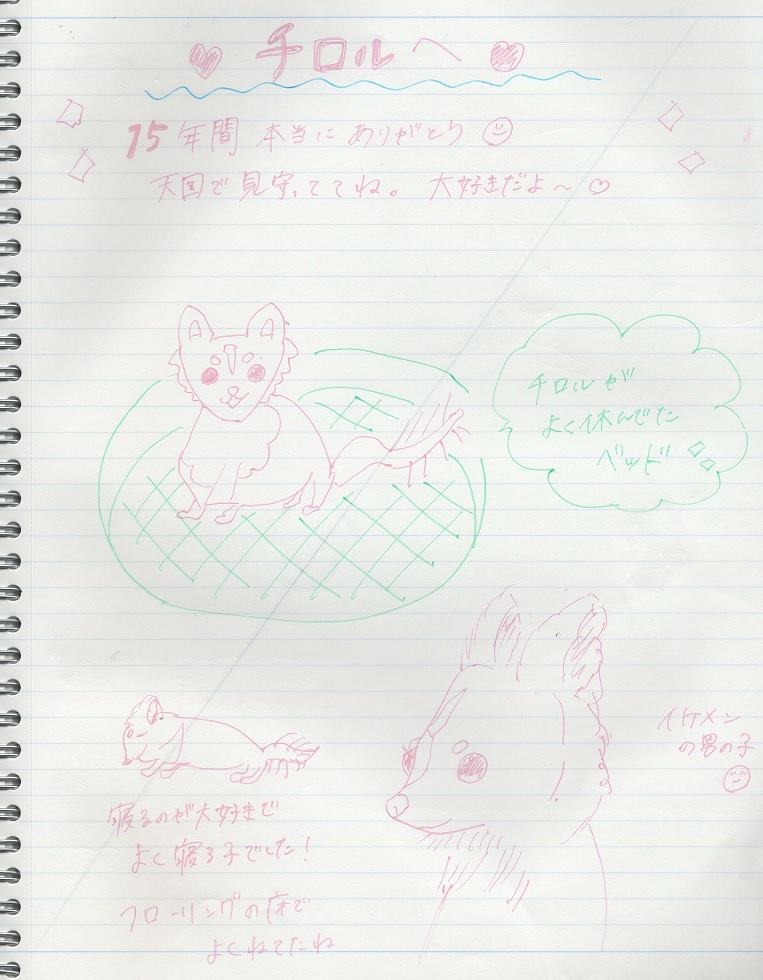 チロルへ
15年間 本当にありがとう
天国で見守っててね。 大好きだよ〜
チロルが
よく休んでた
ベッド
イケメン
の男の子
寝るのが大好きで
よく寝る子でした!
フローリングの床で
よくねてたね